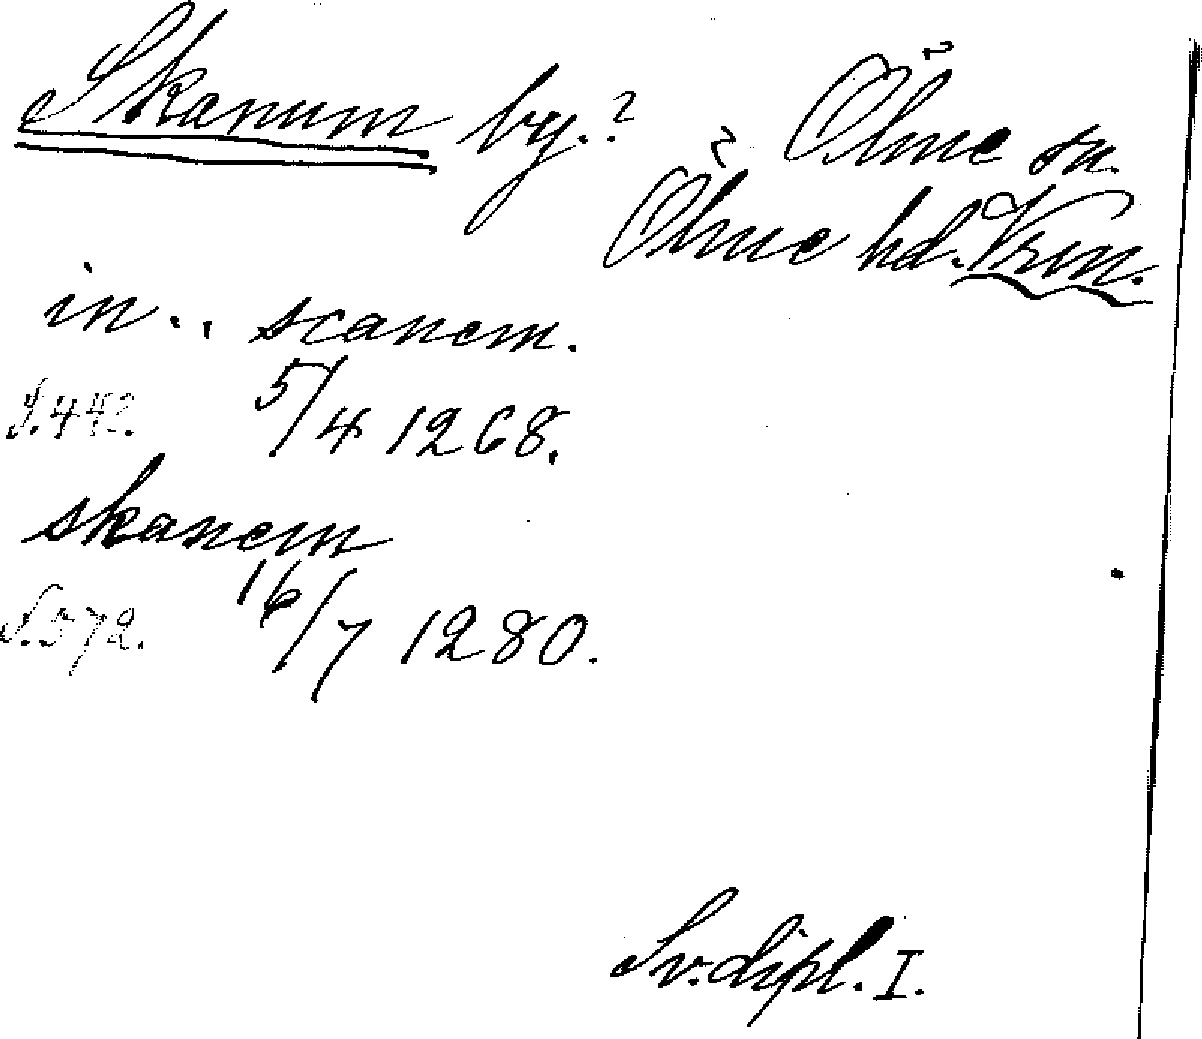 Skanum by.? ? Ölme sn.
? Ölme hd. Vrm.
in.. scanem.
S.442. 5/4 1268.
skanem
S.572. 16/7 1280.
Sv. dipl. I.